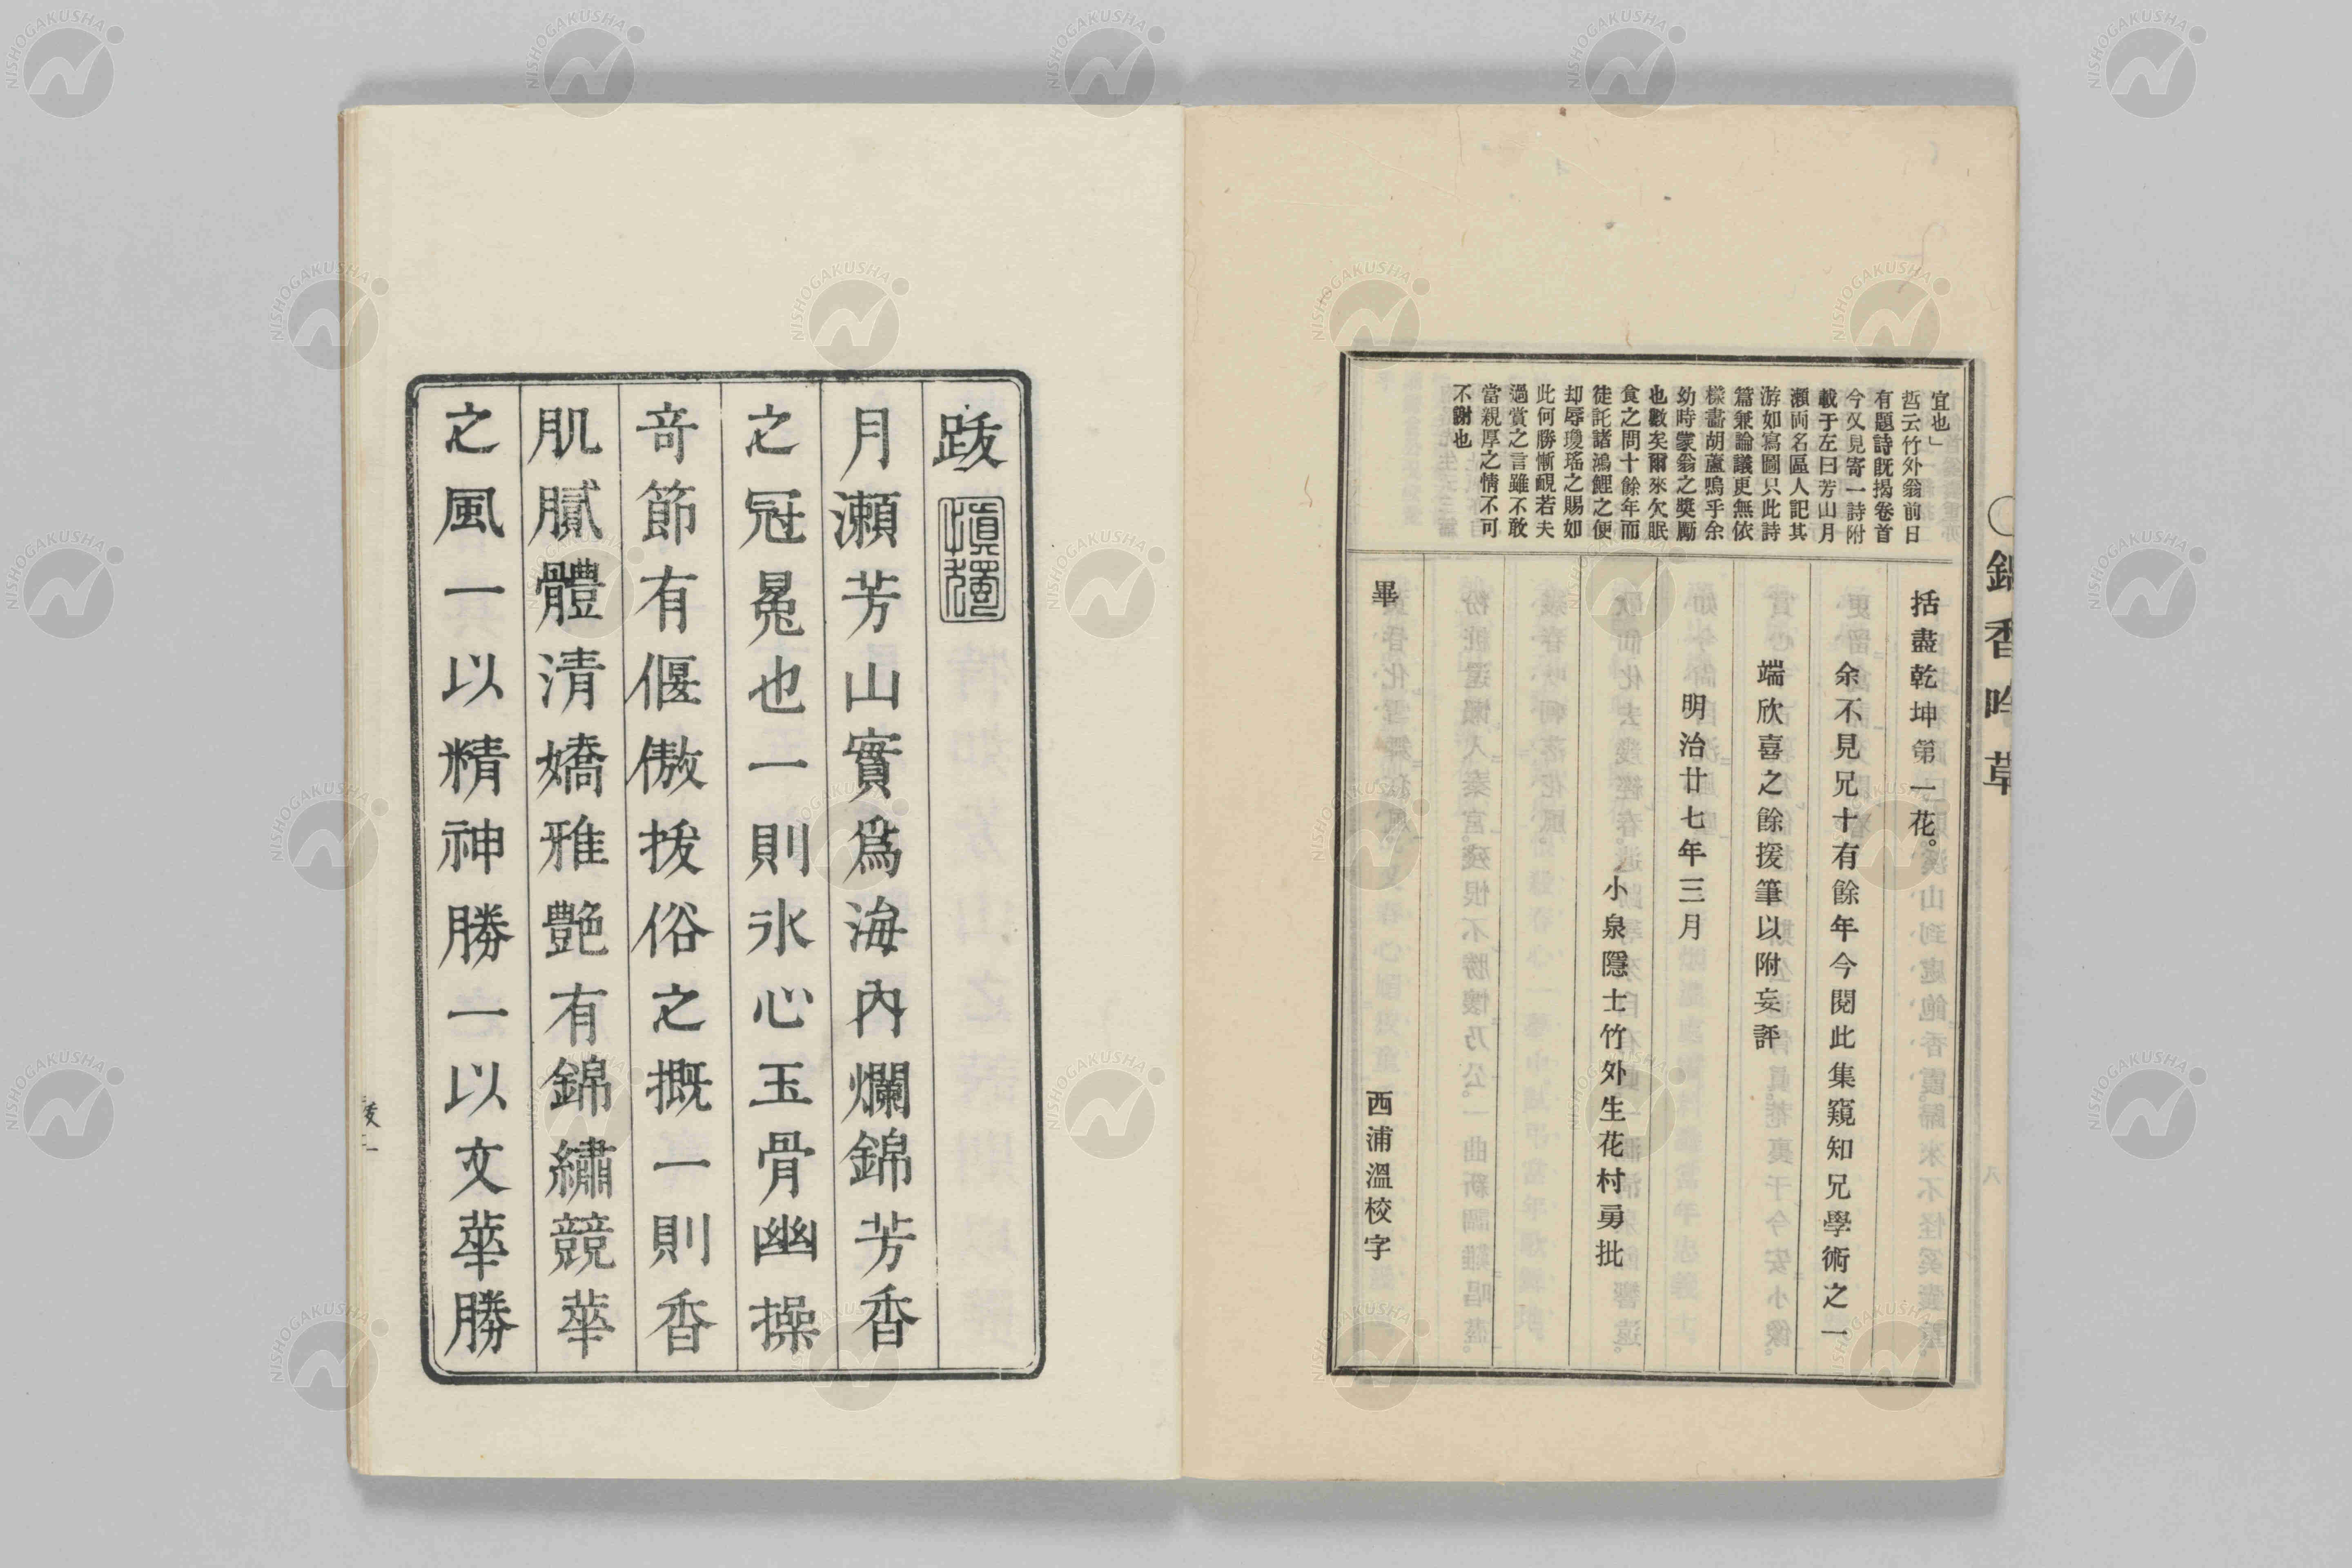 宜也」
哲云竹外翁前日
有題詩既揭卷首
今又見寄一詩附
載于左曰芳山月
瀨両名區人記其
游如寫圖只此詩
篇兼論議更無依
樣畵胡蘆嗚乎余
幼時蒙翁之奬勵
也數矣爾來欠眠
食之問十餘年而
徒託諸鴻鯉之便
却辱瓊瑤之賜如
此何勝慚靦若夫
過賞之言雖不敢
當親厚之情不可
不謝也
括盡乾坤第一花。
余不見兄十有餘年今閱此集窺知兄學術之一
端欣喜之餘援筆以附妄評
明治廿七年三月
小泉隱士竹外生花村勇批
畢
西浦溫校字
錦香吟草
八
跋
愼獨
月瀨芳山實爲海內爛錦芳香
之冠冕也一則氷心玉骨幽操
奇節有偃傲拔俗之概一則香
肌膩體淸嬌雅艶有錦繡競華
之風一以精神勝一以文華勝
NISHOGAKUSHA